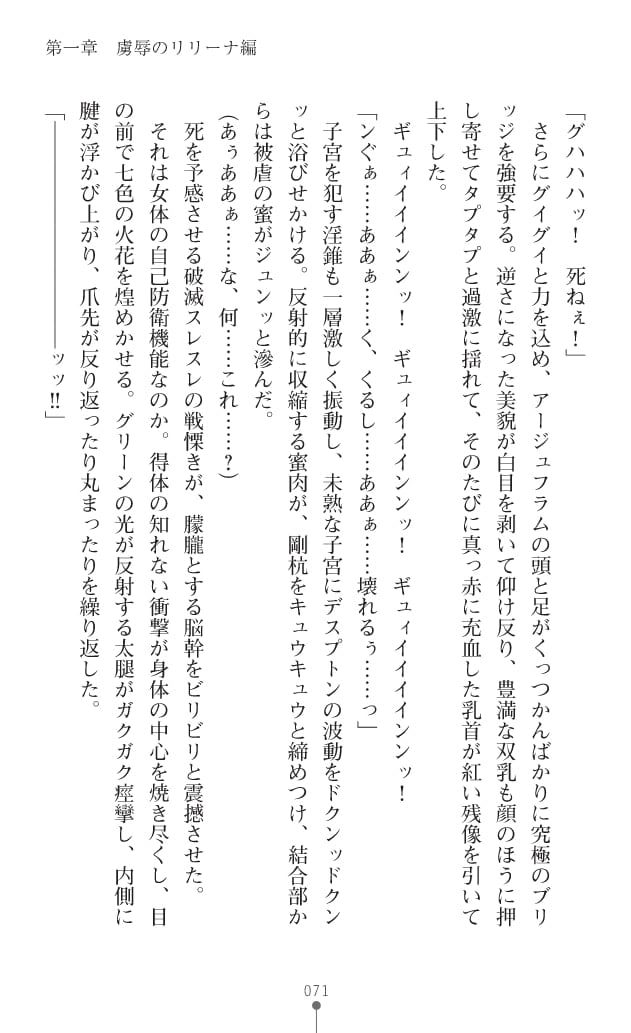 第一章　虜辱のリリーナ編
「グハハハッ！　死ねぇ！」
　さらにグイグイと力を込め、アージュフラムの頭と足がくっつかんばかりに究極のブリ
ッジを強要する。逆さになった美貌が白目を剥いて仰け反り、豊満な双乳も顔のほうに押
し寄せてタプタプと過激に揺れて、そのたびに真っ赤に充血した乳首が紅い残像を引いて
上下した。
　ギュィイイインンッ！　ギュィイイイインンッ！　ギュィイイイイインンッ！
「ンぐぁ……ああぁ……く、くるし……ああぁ……壊れるぅ……っ」
　子宮を犯す淫錐も一層激しく振動し、未熟な子宮にデスプトンの波動をドクンッドクン
ッと浴びせかける。反射的に収縮する蜜肉が、剛杭をキュウキュウと締めつけ、結合部か
らは被虐の蜜がジュンッと滲んだ。
（あぅああぁ……な、何……これ……？）
　死を予感させる破滅スレスレの戦慄きが、朦朧とする脳幹をビリビリと震撼させた。
　それは女体の自己防衛機能なのか。得体の知れない衝撃が身体の中心を焼き尽くし、目
の前で七色の火花を煌めかせる。グリーンの光が反射する太腿がガクガク痙攣し、内側に
腱が浮かび上がり、爪先が反り返ったり丸まったりを繰り返した。
「――――――――――ッッ‼」
071